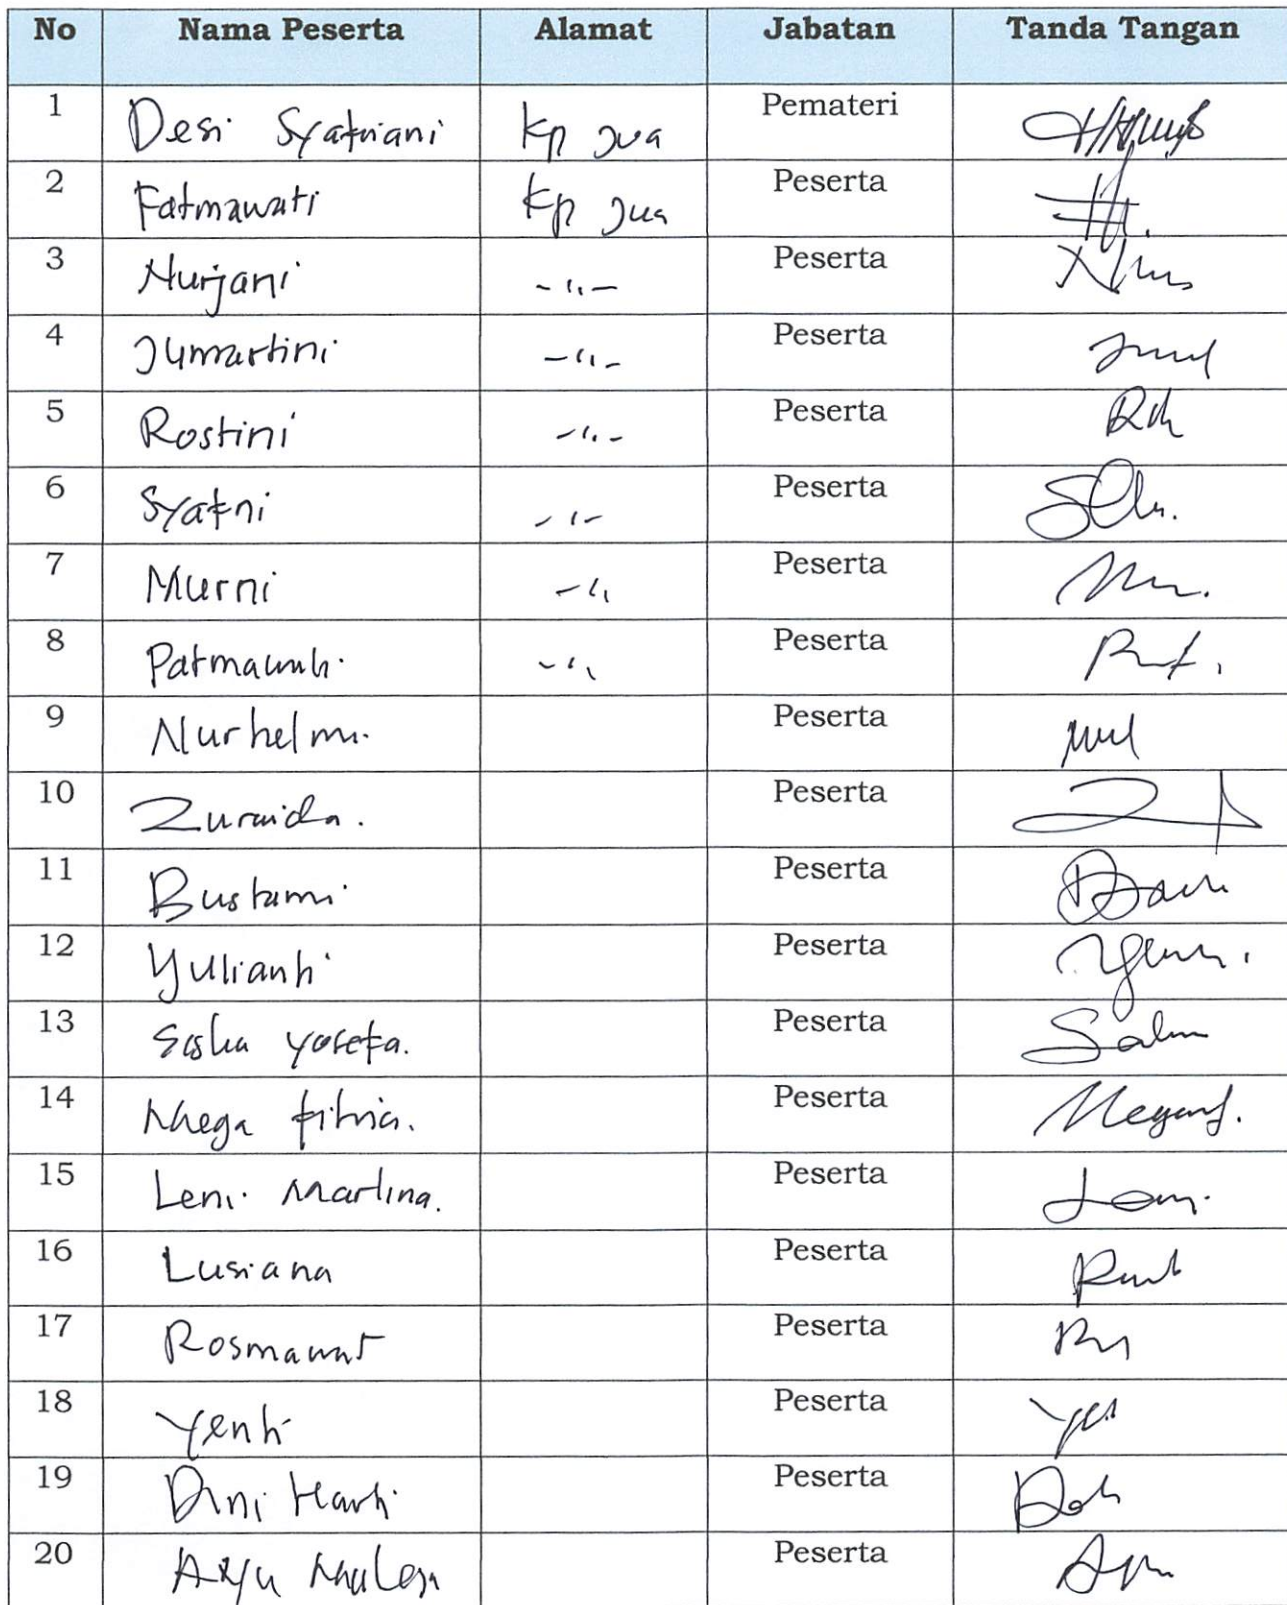 No Nama Peserta Alamat Jabatan Tanda Tangan
1 Desi Syafriani Kp Jua Pemateri
2 Fatmawati Kp Jua Peserta
3 Nurjani -"- Peserta
4 Jumartini -"- Peserta
5 Rostini -"- Peserta
6 Syafni -"- Peserta
7 Murni -" Peserta
8 Patmawati -" Peserta
9 Nurhelmi Peserta
10 Zuraida. Peserta
11 Bustami Peserta
12 Yulianti Peserta
13 Yosefa. Peserta
14 Mhega fitria. Peserta
15 Leni Marlina. Peserta
16 Lusiana Peserta
17 Rosmawat Peserta
18 Yenti Peserta
19 Dini Harti Peserta
20 Peserta